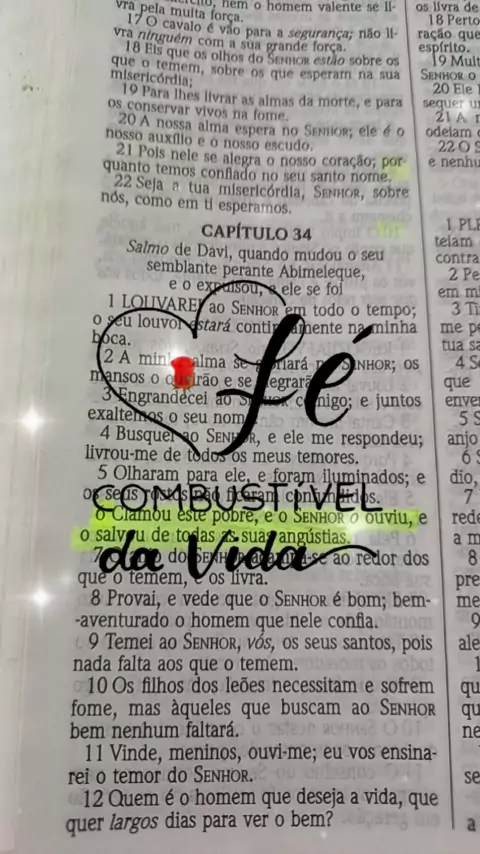 vra pela muita força.
17 O cavalo é vão para a segurança; não li-
vra ninguém com a sua grande força.
18 Eis que os olhos do SENHOR estão sobre os
que o temem, sobre os que esperam na sua
misericórdia;
19 Para lhes livrar as almas da morte, e para
os conservar vivos na fome.
20 A nossa alma espera no SENHOR; ele é o
nosso auxílio e o nosso escudo.
21 Pois nele se alegra o nosso coração; por-
quanto temos confiado no seu santo nome.
22 Seja a tua misericórdia, SENHOR, sobre
nós, como em ti esperamos.
CAPÍTULO 34
Salmo de Davi, quando mudou o seu
semblante perante Abimeleque,
e o expulsou, e ele se foi
1 LOUVAREI ao SENHOR em todo o tempo;
o seu louvor estará continuamente na minha
boca.
2 A minha alma se gloriará no SENHOR; os
mansos o ouvirão e se alegrarão.
3 Engrandecei ao SENHOR comigo; e juntos
exaltemos o seu nome.
4 Busquei ao SENHOR, e ele me respondeu;
livrou-me de todos os meus temores.
5 Olharam para ele, e foram iluminados; e
os seus rostos não ficaram confundidos.
6 Clamou este pobre, e o SENHOR o ouviu, e
o salvou de todas as suas angústias.
ao redor dos
que o temem, e os livra.
8 Provai, e vede que o SENHOR é bom; bem-
-aventurado o homem que nele confia.
9 Temei ao SENHOR, vós, os seus santos, pois
nada falta aos que o temem.
10 Os filhos dos leões necessitam e sofrem
fome, mas àqueles que buscam ao SENHOR
bem nenhum faltará.
11 Vinde, meninos, ouvi-me; eu vos ensina-
rei o temor do SENHOR.
12 Quem é o homem que deseja a vida, que
quer largos dias para ver o bem?
fé
COMBUSTÍVEL
da Vida
os livra de
18 Perto
espírito.
SENHOR o
20 Ele
odeiam
22 O S
e nenhu